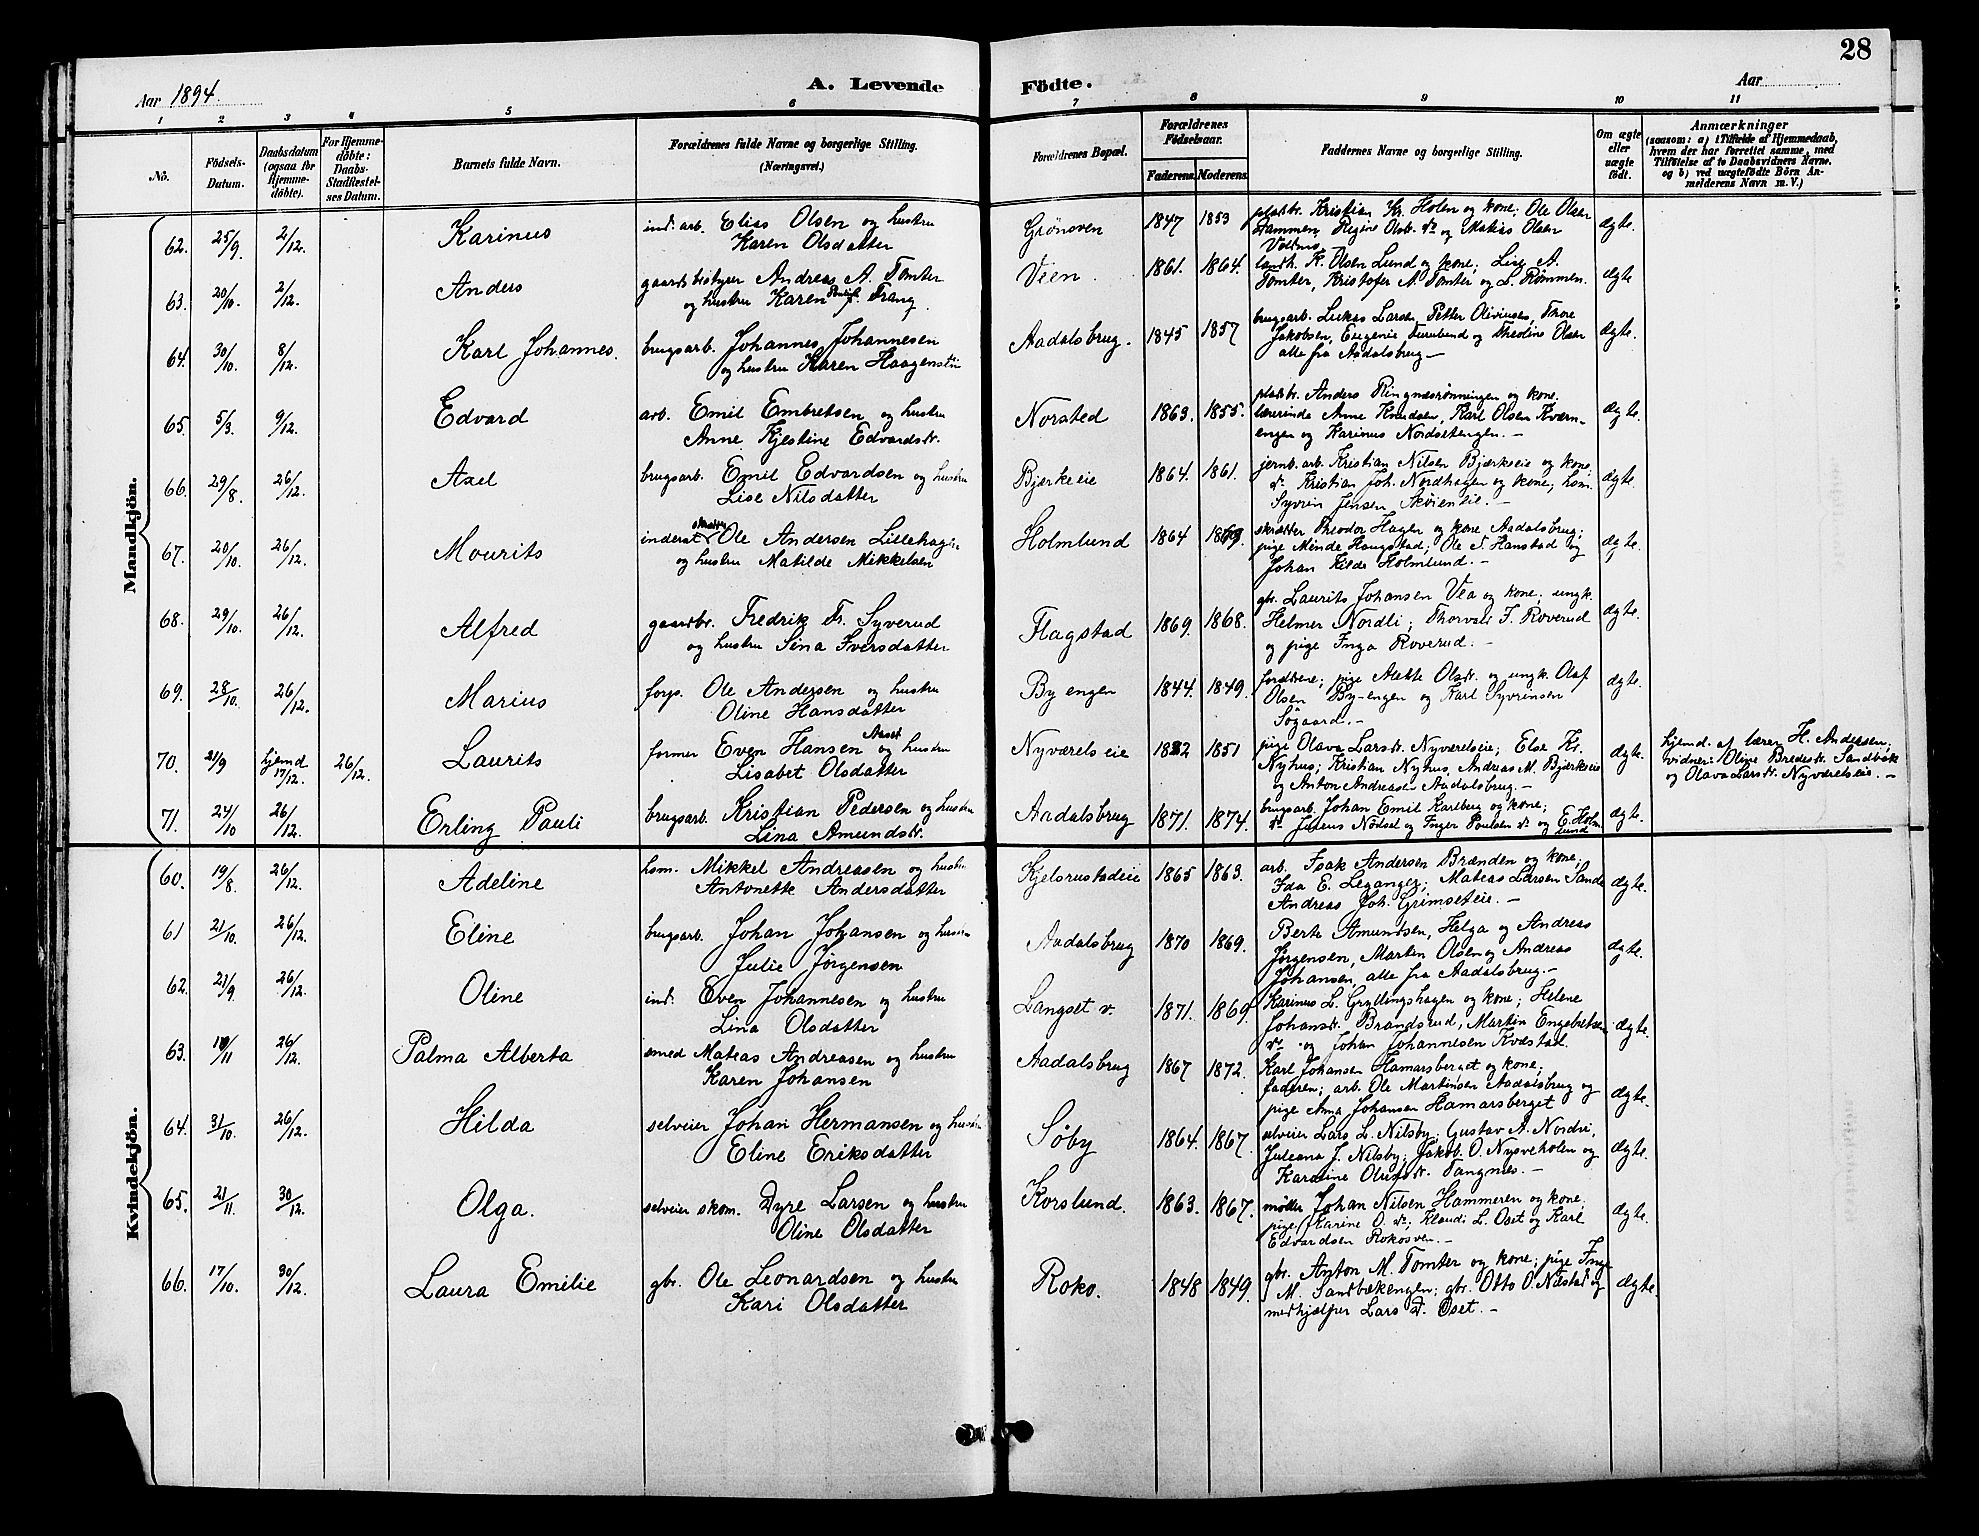 28
Aar 1894.
A. Levende Födte.
Aar
1 2 3 4 5 6 7 8 9 10 11
No.
Födsels-Datum.
Daabsdatum (ogsaa for Hjemmedöbte).
For Hjemmedöbte: Daabs-Stadfæstelses Datum.
Barnets fulde Navn.
Forældrenes fulde Navne og borgerlige Stilling. (Næringsvei.)
Forældrenes Bopæl.
Forældrenes Födselsaar.
Faderens. Moderens.
Faddernes Navne og borgerlige Stilling.
Om ægte eller uægte födt.
Anmærkninger
(saasom: a) i Tilfælde af Hjemmedaab, hvem der har forrettet samme, med Tilföielse af to Daabsvidners Navne, og b) ved uægtefödte Börn Anmelderens Navn m. V.)
Mandkjön.
62. 25/9 2/12. Karinus ind. arb. Elias Olsen og hustru Karen Olsdatter Grönoven 1847 1853 pladsbr. Kristian Kr. Holen og kone; Ole Olsen Dammen, Regine Olsb. do og Matias Olsen ægte.
63. 20/10. 2/12. Anders gaardsbestyrer Andreas A. Tomter og hustru Karen Trang Veen 1861. 1864. landh. K. Olsen Lund og kone; Lise A. Tomter, Kristofer A. Tomter og L. Rømmen. ægte
64. 30/10. 8/12. Karl Johannes. brugsarb. Johannes Johannesen og hustru Karen Haagenstr. Aadalsbrug. 1845 1857 brugsarb. Lukas Larsen, Petter Oliviusen, Thore Jakobsen, Eugenie Furulund og Theoline Olsen alle fra Aadalsbrug — ægte.
65. 5/3. 9/12. Edvard arb. Emil Embretsen og hustru Anne Kjestine Edvardstr. Norsted 1863. 1855. pladsbr. Anders Ringnæsrønningen og kone, lærerinde Anne Knudsen, Karl Olsen Kværnengen og Karinus Nordsetengen. — ægte.
66. 29/8. 26/12. Axel brugsarb. Emil Edvardsen og hustru Lise Nilsdatter Bjerkeeie 1864. 1861. jernb. arb. Kristian Nilsen Bjærkseie og kone, do Kristian Joh. Nordhagen og kone; hsm. Syverin Jensen Skøieneie. — ægte.
67. 20/10. 26/12. Mourits inderst Ole Andersen Lillehagen og hustru Matilde Mikkelsen Holmlund 1864 skrædder Theodor Hagen og kone Aadalsbrug; pige Minda Haugstad; Ole T. Hanstad og Johan Kilde Holmlund. — ægte.
68. 29/10. 26/12. Alfred gaardbr. Fredrik Fr. Syverud og hustru Sina Iversdatter Flagstad 1869. 1868. gbr. Laurits Johansen Vea og kone; ungk. Helmer Nordli; Thorvald I. Roverud og pige Inga Roverud. — ægte.
69. 28/10. 26/12. Marius forp. Ole Andersen og hustru Oline Hansdatter Byengen 1844. 1849. forældrene; pige Alette Olsdr. og ungk. Olaf Olsen By-engen og Karl Syvrinsen Søgaard. — ægte.
70. 21/9 hjemd 17/12. 26/12. Laurits former Even Hansen Aaset og hustru Lisabet Olsdatter Nyværelseie 1851 pige Olava Larsdr. Nyværelseie; Else Kr. Nyhus; Kristian Nyhus, Andreas M. Bjærkseie og Anton Andreasen Aadalsbrug. — ægte. hjemd. af lærer H. Andersen; vidner: Oline Bredestr. Sandbæk og Olava Larsdr. Nyværelseie. —
71. 24/10 26/12. Erling Pauli brugsarb. Kristian Pedersen og hustru Lina Amundstr. Aadalsbrug 1871. 1874. brugsarb. Johan Emil Karlberg og kone; do Julius Nødsel og Inger Poulsen do og E. Holmlund ægte.
Kvindekjön.
60. 19/8. 26/12. Adeline hsm. Mikkel Andreassen og hustru Antonette Andersdatter Kjelsrustadeie 1865 1863. arb. Isak Andersen Brænden og kone; Ida E. Leganger; Mateas Larsen Sande Andreas Joh. Grimseteie. — ægte.
61 21/10. 26/12. Eline brugsarb. Johan Johansen og hustru Julie Jørgensen Aadalsbrug 1870 1869. Berte Amundsen, Helga og Andreas Jørgensen, Martin Olsen og Andreas Johansen, alle fra Aadalsbrug. — ægte.
62. 21/9. 26/12. Oline ind. Even Johannesen og hustru Lina Olsdatter Langset v. 1871. 1869. Karinus L. Gryllingshagen og kone; Helene Johanstr. Brandsrud, Martin Engebretsen do og Johan Johannesen Kvæstad. ægte.
63. 26/12. Palma Alberta smed Mateas Andreasen og hustru Karen Johansen Aadalsbrug 1867 1872. Karl Johansen Hamarsberget og kone; faderen; arb. Ole Martinsen Aadalsbrug og pige Anna Johansen Hamarsberget ægte.
64. 31/10. 26/12. Hilda selveier Johan Hermansen og hustru Eline Eriksdatter Søby 1864. 1867. selveier Lars L. Nilsby; Gustav A. Nordvi, Juleana J. Nilsby; Jakob O. Nysveholen og Karoline Olufsdr. Tangnes. — ægte.
65. 21/11. 30/12. Olga. selveier skom. Dyre Larsen og hustru Oline Olsdatter Korslund. 1863. 1867. møller Johan Nilsen Hammeren og kone; pige Karine O. do; Klaudi L. Oset og Karl Edvardsen Rokosven. — ægte.
66. 17/10. 30/12. Laura Emilie gbr. Ole Leonardsen og hustru Kari Olsdatter Roko. 1848 1849. gbr. Anton M. Tomter og kone; pige Inga M. Sandbækengen; gbr. Otto O. Nilstad og medhjælper Lars D. Oset. — ægte.